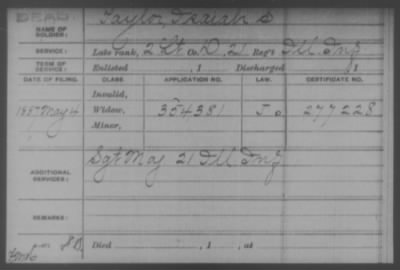 DEAD:
NAME OF SOLDIER: Taylor, Isaiah S
SERVICE: Late rank, 2 Lt Co. D, 21 Reg't Ill. Inf
TERM OF SERVICE: Enlisted , 1 Discharged , 1
DATE OF FILING. CLASS. APPLICATION NO. LAW. CERTIFICATE NO.
Invalid,
1887 May 4 Widow, 354381 J o 277228
Minor,
ADDITIONAL SERVICES: Sgt Maj 21 Ill Inf
REMARKS:
Died , 1 , at